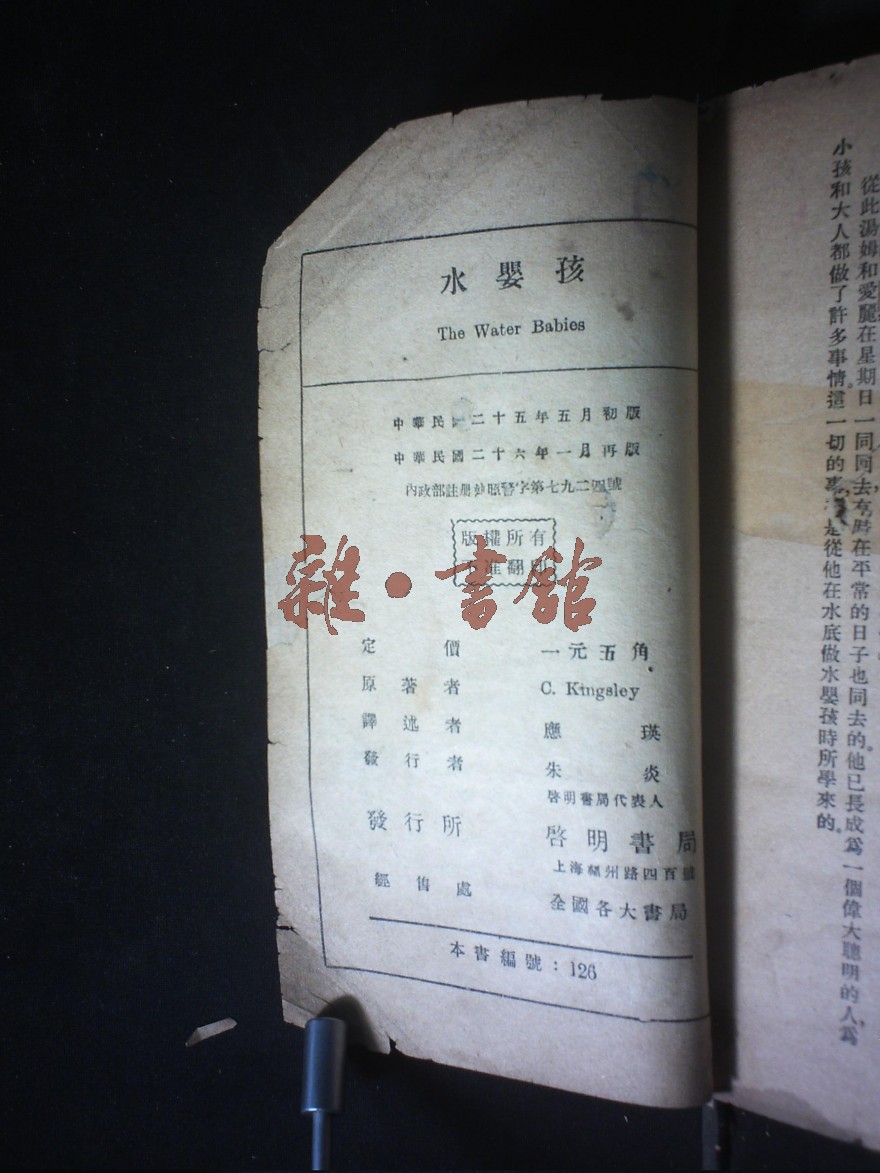 水嬰孩
The Water Babies
中華民國二十五年五月初版
中華民國二十六年一月再版
內政部註册執照警字第七九二四號
版權所有
不准翻印
雜·書館
定價 一元五角
原著者 C. Kingsley
譯述者 應瑛
發行者 朱炎
啓明書局代表人
發行所 啓明書局
上海福州路四百號
經售處 全國各大書局
本書編號：126
從此湯姆和愛麗在星期日一同回去，有時在平常的日子也同去的。他已長成爲一個偉大聰明的人，爲
小孩和大人都做了許多事情。這一切的事是從他在水底做水嬰孩時所學來的。